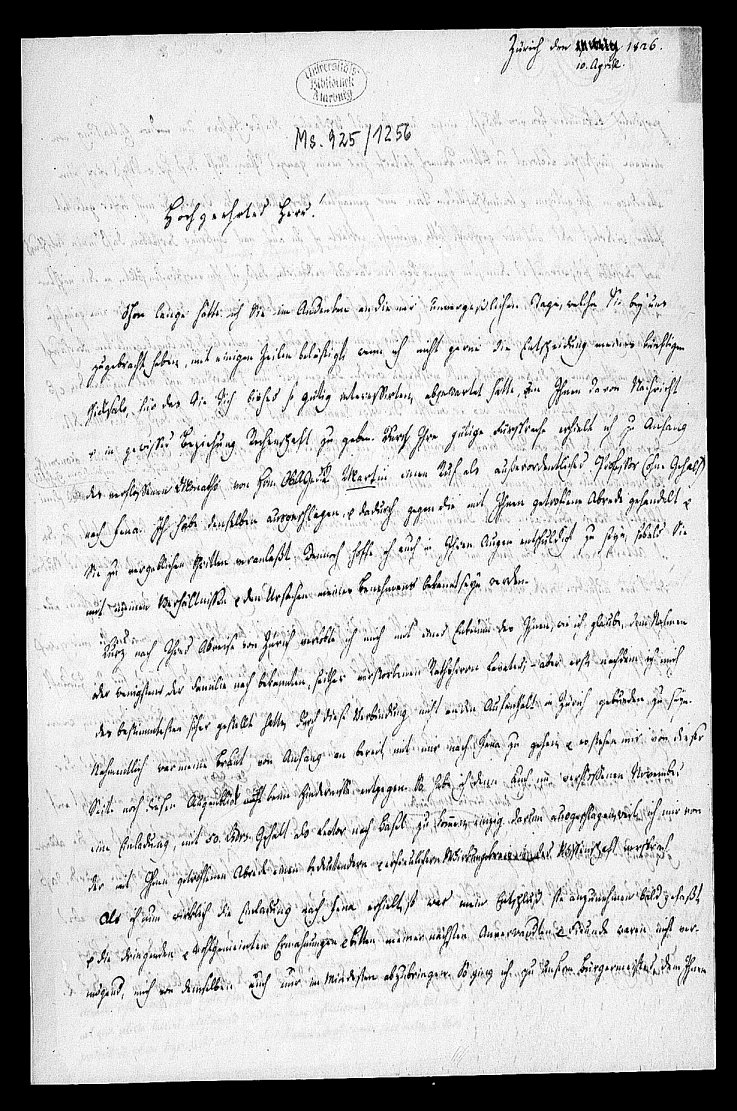 Zürich den 1826.
10. April.
Universitäts
Bibliothek
Marburg
Ms. 925/1256
Hochgeehrter Herr!
Schon lange hätte ich Sie im Andenken an die mir unvergeßlichen Tage, welche Sie bey uns
zugebracht haben, mit einigen Zeilen belästigt, wenn ich nicht gerne die Entscheidung meines künftigen
Schicksals, für das Sie Sich bisher so gütig interessirten, abgewartet hätte, um Ihnen davon Nachricht
& in gewisser Beziehung Rechenschaft zu geben. Durch Ihre gütige Fürsprache erhielt ich zu Anfang
des verflossenen Monaths von Hrn. Martin einen Ruf als außerordentlicher Professor (ohne Gehalt)
nach Jena. Ich habe denselben ausgeschlagen, & dadurch gegen die mit Ihnen getroffene Abrede gehandelt &
Sie zu vergeblichen Schritten veranlaßt. Dennoch hoffe ich auch in Ihren Augen entschuldigt zu seyn, sobald Sie
mit meinen Verhältnissen & den Ursachen meines Benehmens bekannt seyn werden.
Kurz nach Ihrer Abreise von Zürich verlobte ich mich mit einer Enkelinn des Ihnen, wie ich glaube, dem Nahmen
oder wenigstens der Familie nach bekannten, seither verstorbenen Rathsherrn Lavater; - aber erst nachdem ich mich
des bestimmtesten sicher gestellt hatte, durch diese Verbindung nicht an den Aufenthalt in Zürich gebunden zu seyn.
Nahmentlich war meine Braut von Anfang an bereit mit mir nach Jena zu gehen, & es stehen mir von dieser
Seite noch diesen Augenblick keine Hindernisse entgegen. So habe ich denn auch im verflossenen November
eine Einladung, mit 50. Gehalt als Lector nach Basel zu kommen einzig darum ausgeschlagen, weil ich mir von
der mit Ihnen getroffenen Abrede einen bedeutendern & erfreulichern Wirkungskreis in der Wissenschaft versprach.
Als ich nun wirklich die Einladung nach Jena erhielt, so war mein Entschluß sie anzunehmen bald gefaßt,
& die dringenden & wohlgemeinten Ermahnungen & Bitten meiner nächsten Anverwandten & Freunde waren nicht ver-
mögend, mich von demselben auch nur im Mindesten abzubringen. So ging ich zu unserm Bürgermeister, dem Ihnen